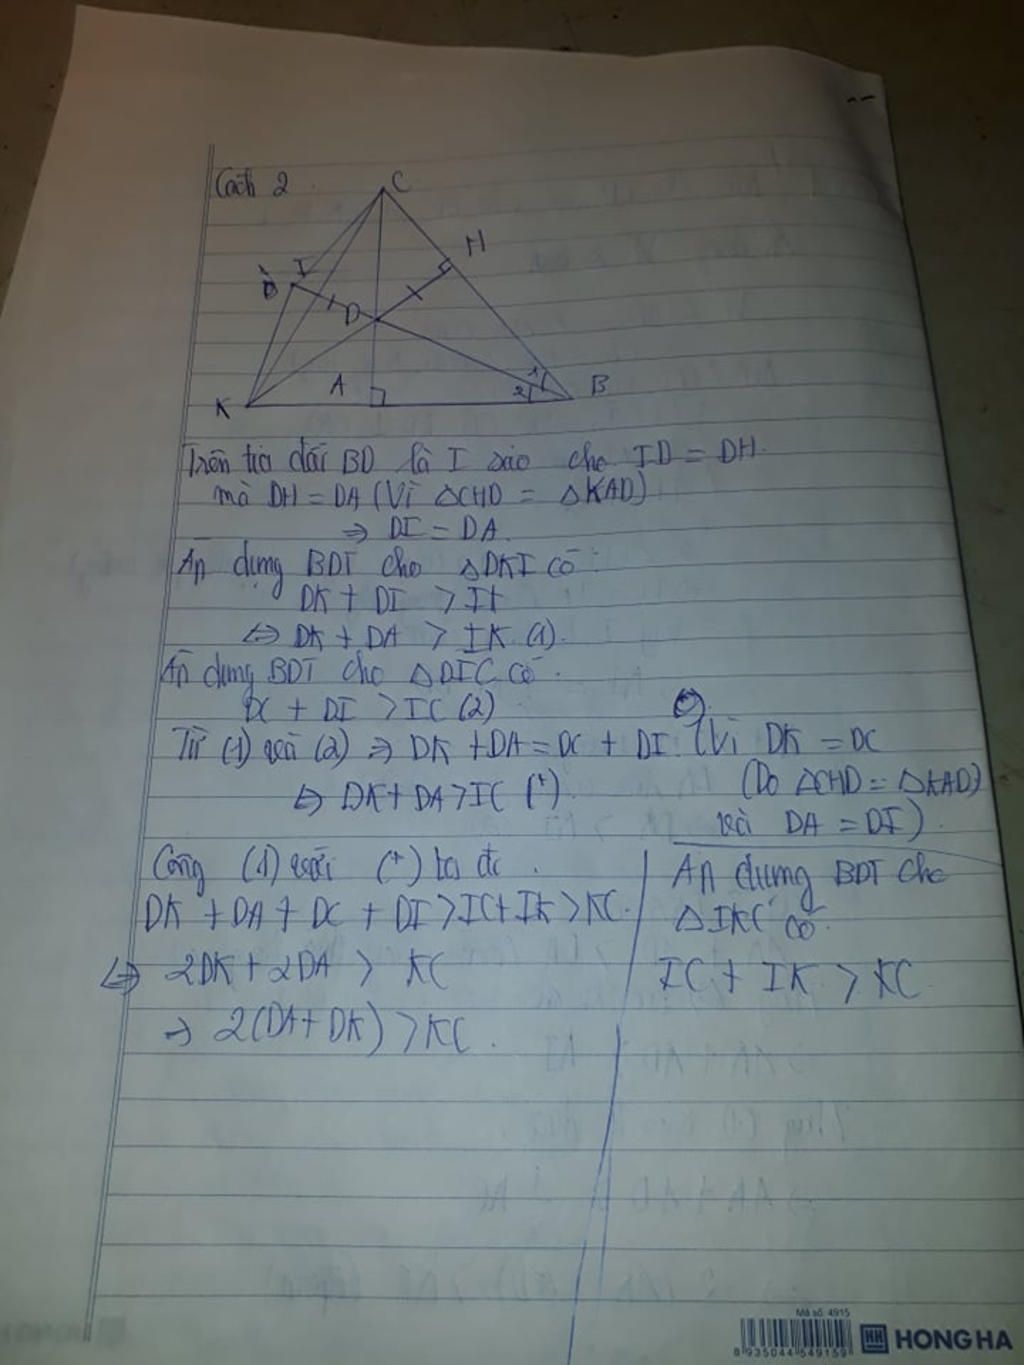 Cách 2
C
H
I
D
A
K
1
2
B
Trên tia đối BD là I sao cho ID = DH
mà DH = DA (Vì △CHD = △KAD)
⇒ DI = DA
Áp dụng BDT cho △DKI có:
DK + DI > IK
⇔ DK + DA > IK (1).
Áp dụng BDT cho △DIC có
DC + DI > IC (2)
Từ (1) và (2) ⇒ DK + DA = DC + DI (Vì DK = DC
(Do △CHD = △KAD)
⇔ DK + DA > IC (*)
và DA = DI)
Cộng (1) với (*) ta đc
DK + DA + DC + DI > IC + IK > KC
⇔ 2DK + 2DA > KC
⇒ 2(DA + DK) > KC.
Áp dụng BDT cho
△IKC có
IC + IK > KC
Mã số: 4915
8 935044 549159
HH HONG HA